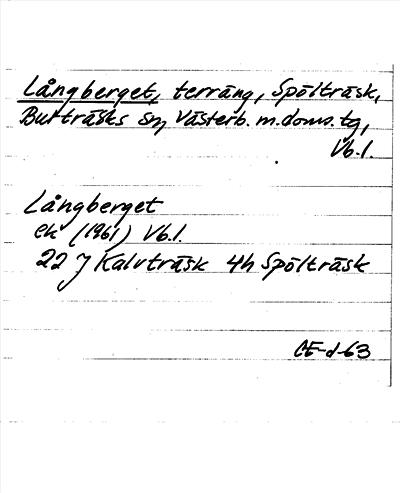 Långberget, terräng, Spölträsk,
Burträsks sn, Västerb. m. doms. tg,
Vb. l.
Långberget
ek (1961) Vb. l.
22 J Kalvträsk 4h Spölträsk
CE-d-63